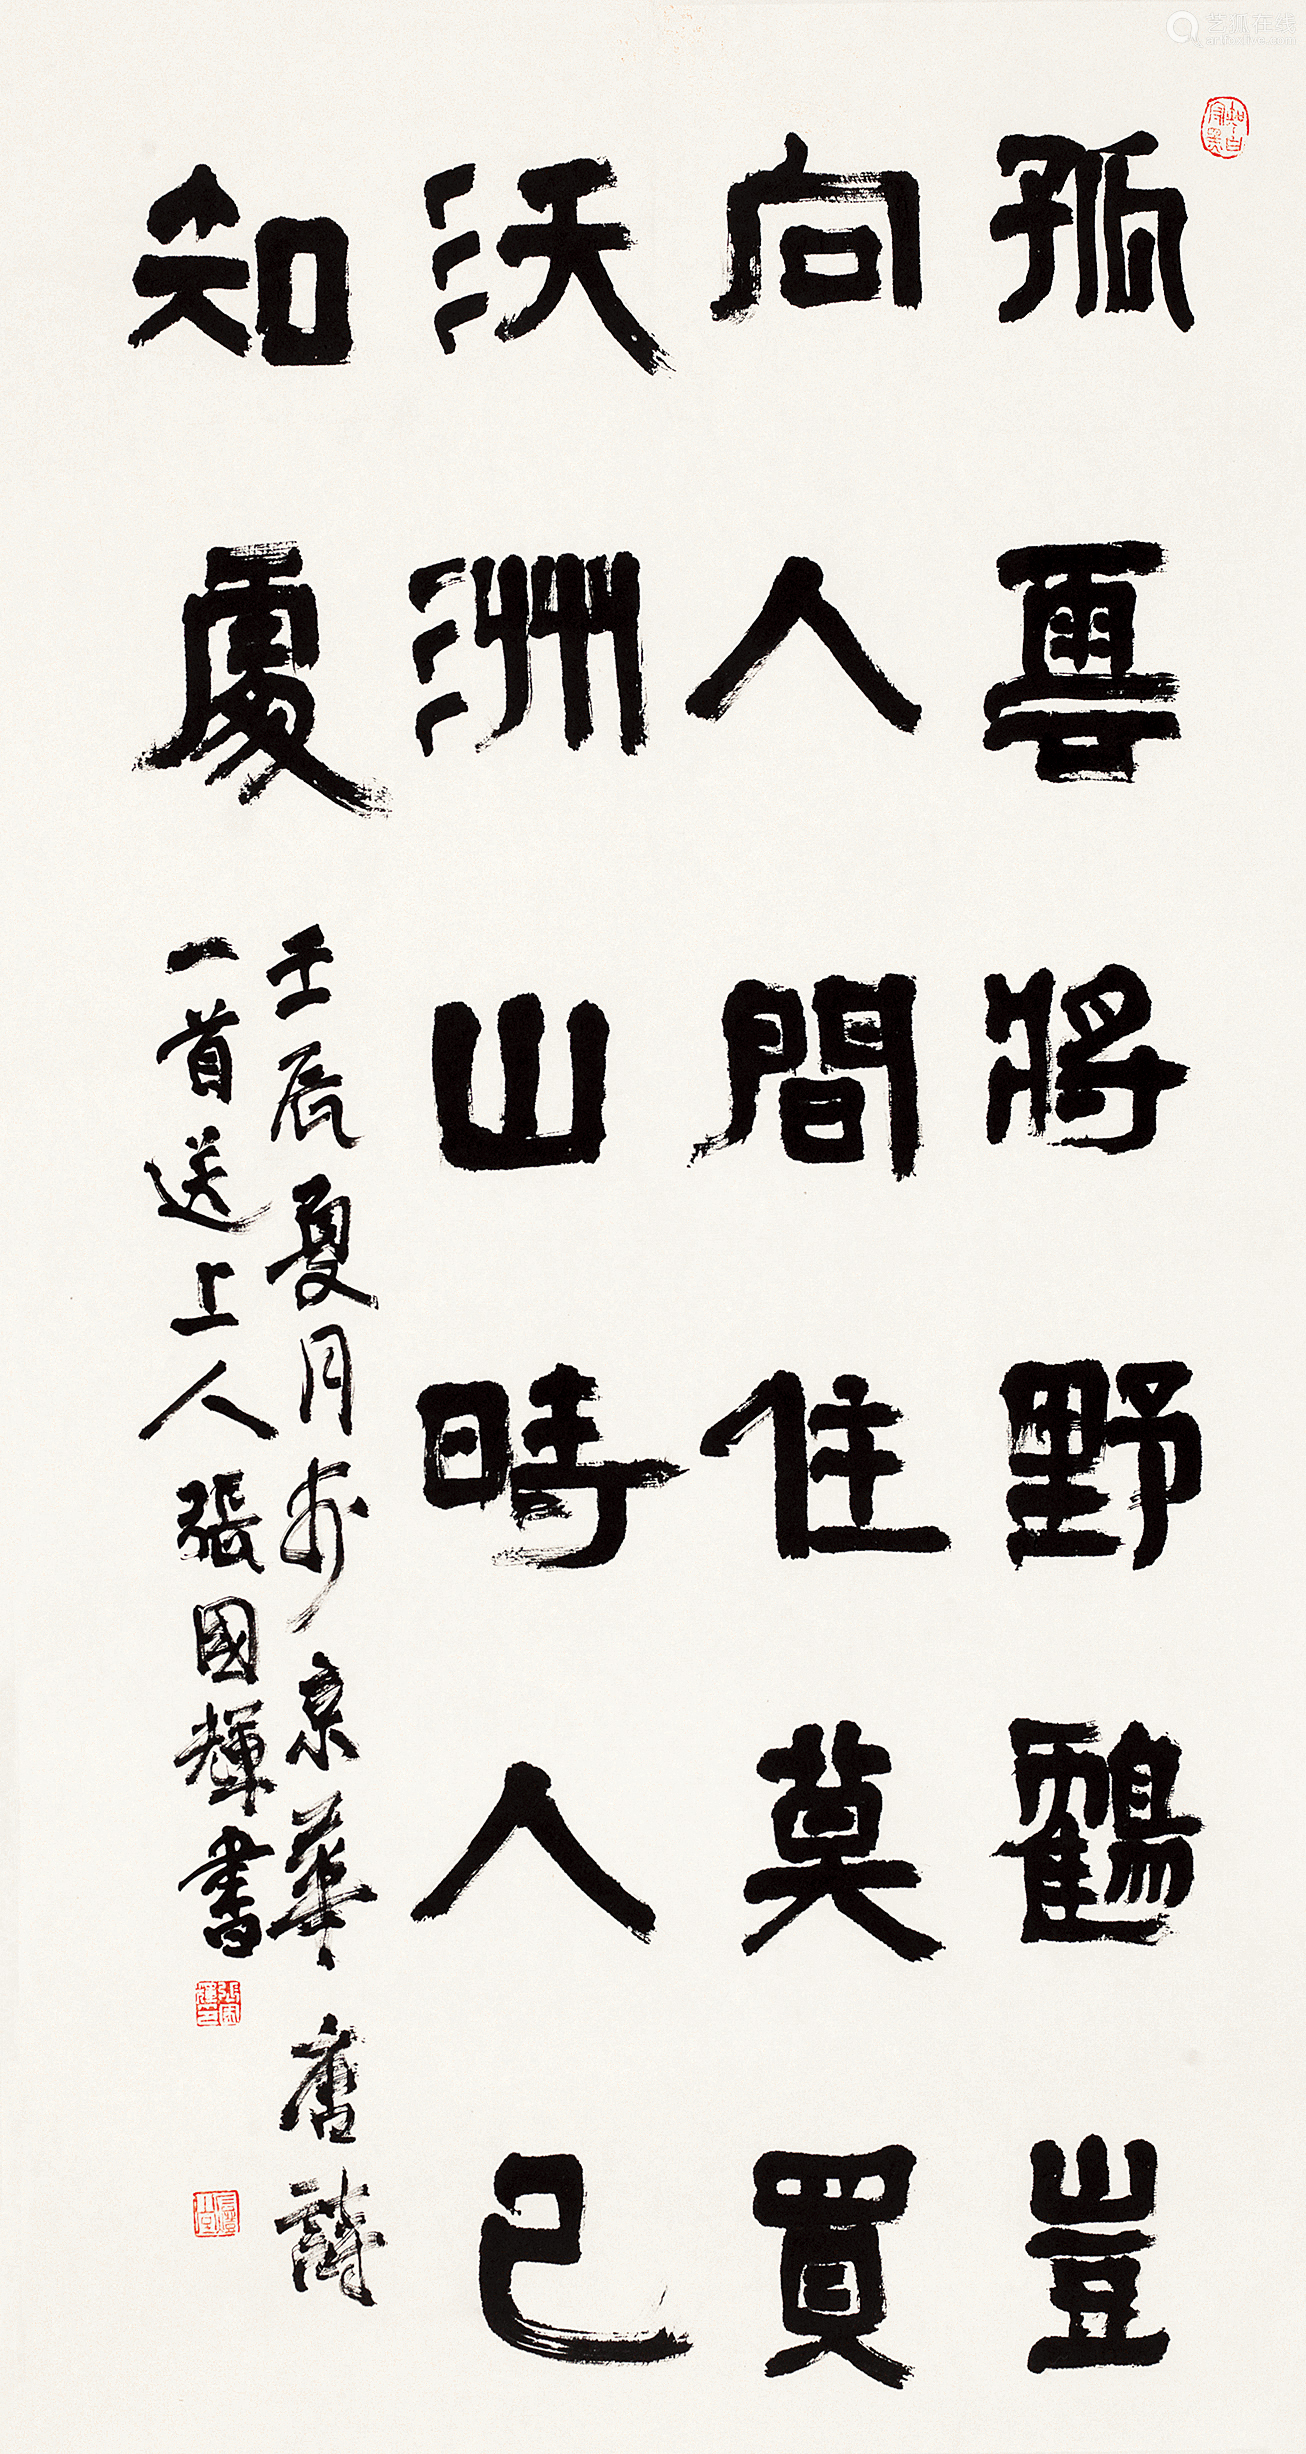 孤雲將野鶴豈
向人間住莫買
沃洲山時人已
知處
壬辰夏月於京華唐詩
一首送上人張國輝書
知白守黑
艺狐在线